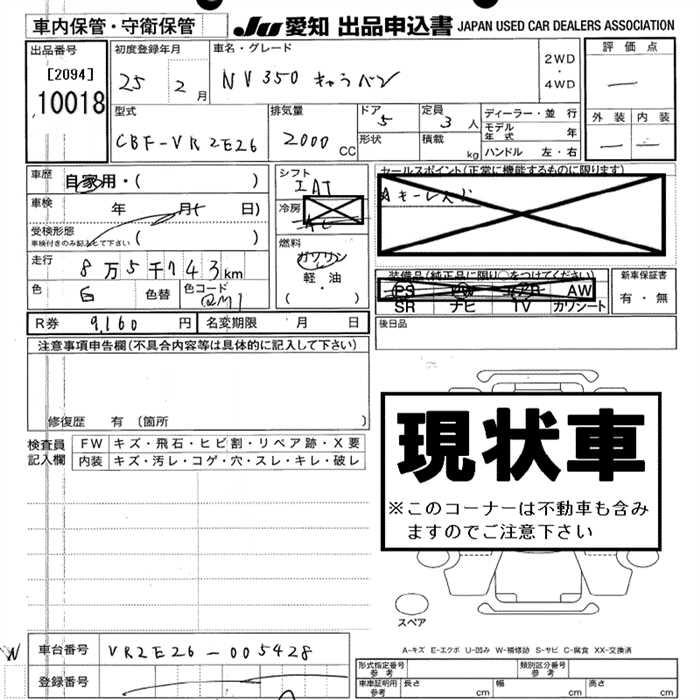 車内保管・守衛保管
JU 愛知 出品申込書 JAPAN USED CAR DEALERS ASSOCIATION
出品番号
[2094]
10018
初度登録年月
25 2月
車名・グレード
NV350 キャラバン
2WD
・
4WD
評価点
外装 内装
型式
CBF-VR2E26
排気量
2000 CC
ドア
5
形状
定員
3人
積載
kg
ディーラー・並行
モデル年式 年
ハンドル 左・右
車歴
自家用・( )
車検 年 月 日)
受検形態
車検付きのみ記入して下さい ( )
走行
8万5千743km
色 白 色替 色コード QM1
シフト
IAT
冷房
AC
燃料
ガソリン
・
軽油
( )
セールスポイント(正常に機能するものに限ります)
キーレス
装備品(純正品に限り○をつけてください)
PS PW AW
SR ナビ TV カワシート
新車保証書
有・無
R券 9,160円 名変期限 月 日
後日品
注意事項申告欄(不具合内容等は具体的に記入して下さい)
修復歴 有〔箇所 〕
検査員
記入欄
FW キズ・飛石・ヒビ割・リペア跡・X要
内装 キズ・汚レ・コゲ・穴・スレ・キレ・破レ
現状車
※このコーナーは不動車も含み
ますのでご注意下さい
スペア
A-キズ E-エクボ U-凹み W-補修跡 S-サビ C-腐食 XX-交換済
N 車台番号 VR2E26-005428
登録番号
形式指定番号
参考
類別区分番号
参考
車庫証明用
参考
長さ cm 幅 cm 高さ cm